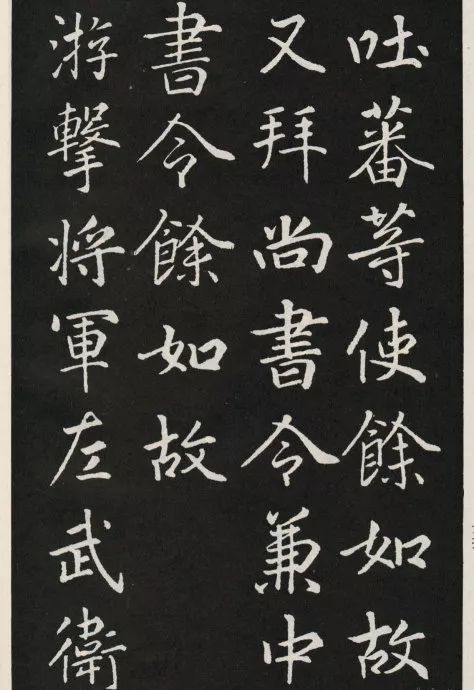 吐蕃等使餘如故
又拜尚書令兼中
書令餘如故
游擊将軍左武衛